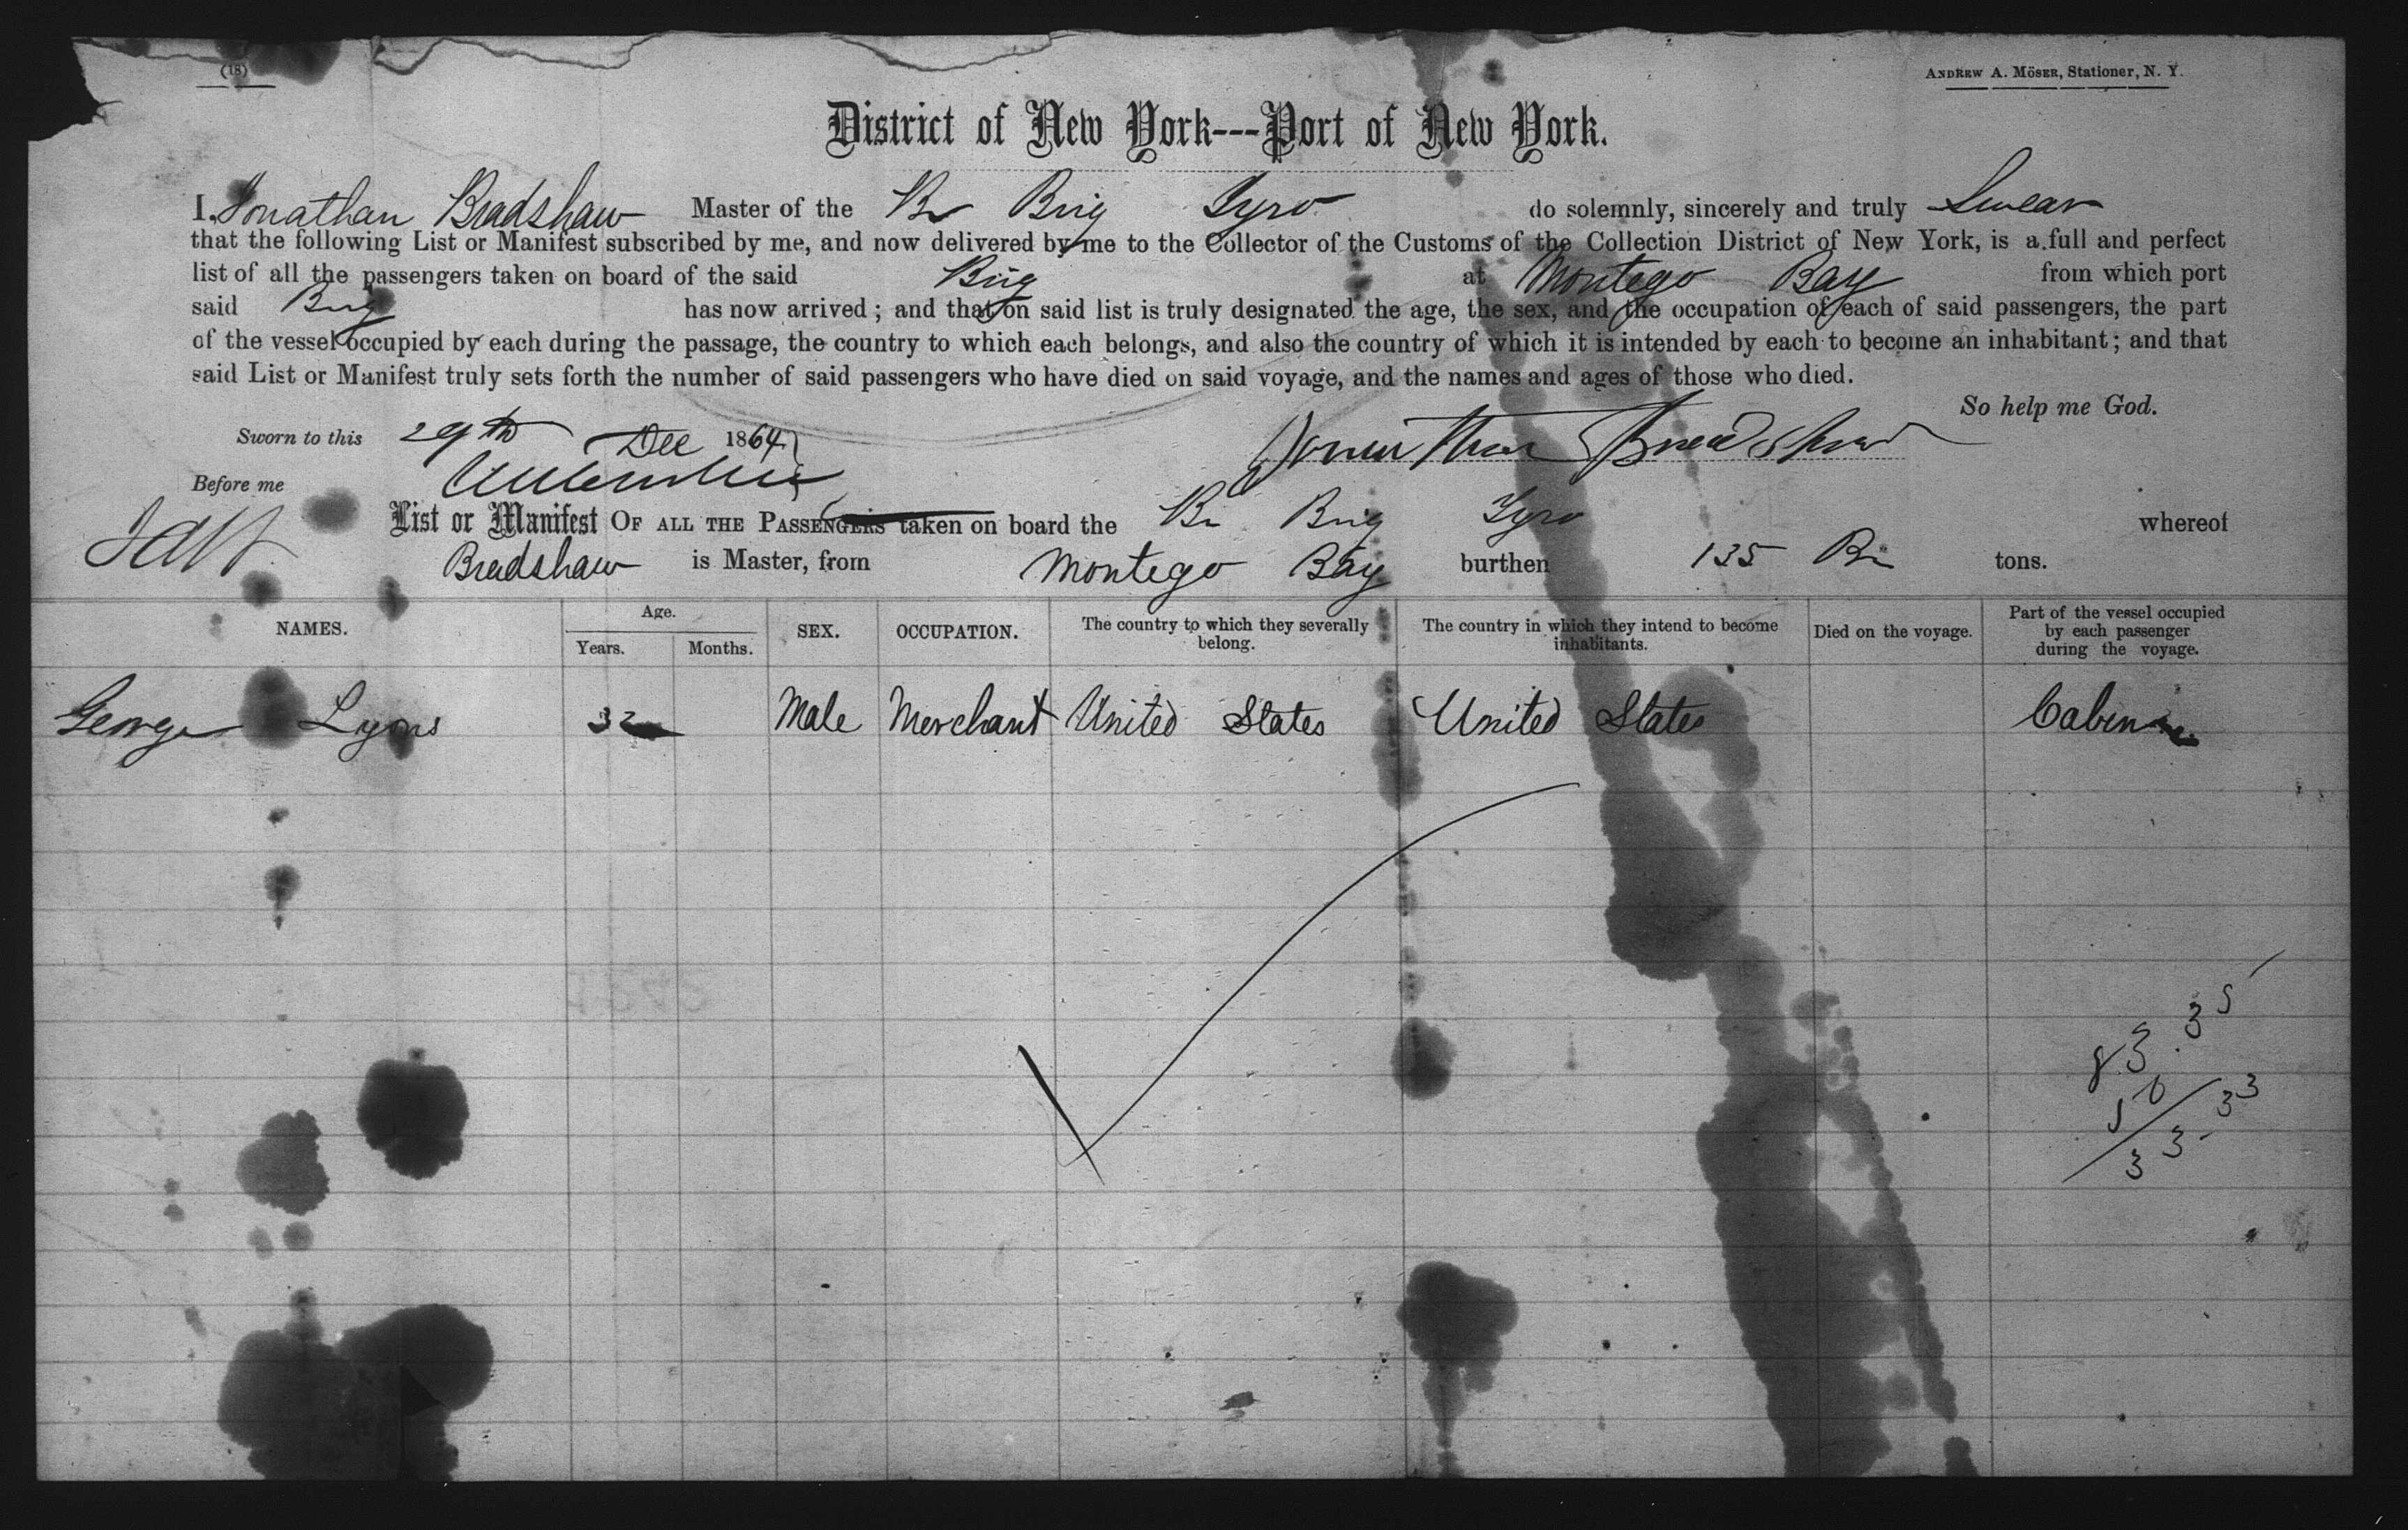 (18)
ANDREW A. MÖSER, Stationer, N. Y.
District of New York---Port of New York.
I, Jonathan Bradshaw Master of the Br Brig Tyro do solemnly, sincerely and truly Swear
that the following List or Manifest subscribed by me, and now delivered by me to the Collector of the Customs of the Collection District of New York, is a full and perfect
list of all the passengers taken on board of the said Brig at Montego Bay from which port
said Brig has now arrived; and that on said list is truly designated the age, the sex, and the occupation of each of said passengers, the part
of the vessel occupied by each during the passage, the country to which each belongs, and also the country of which it is intended by each to become an inhabitant; and that
said List or Manifest truly sets forth the number of said passengers who have died on said voyage, and the names and ages of those who died.
So help me God.
Sworn to this 29th Dec 1864
Jonathan Bradshaw
Before me
List or Manifest OF ALL THE PASSENGERS taken on board the Br Brig Tyro whereof
Bradshaw is Master, from Montego Bay burthen 135 Br tons.
NAMES. Age. Years. Months. SEX. OCCUPATION. The country to which they severally belong. The country in which they intend to become inhabitants. Died on the voyage. Part of the vessel occupied by each passenger during the voyage.
George Lyons 32 Male Merchant United States United States Cabin
83.35
50
33-33